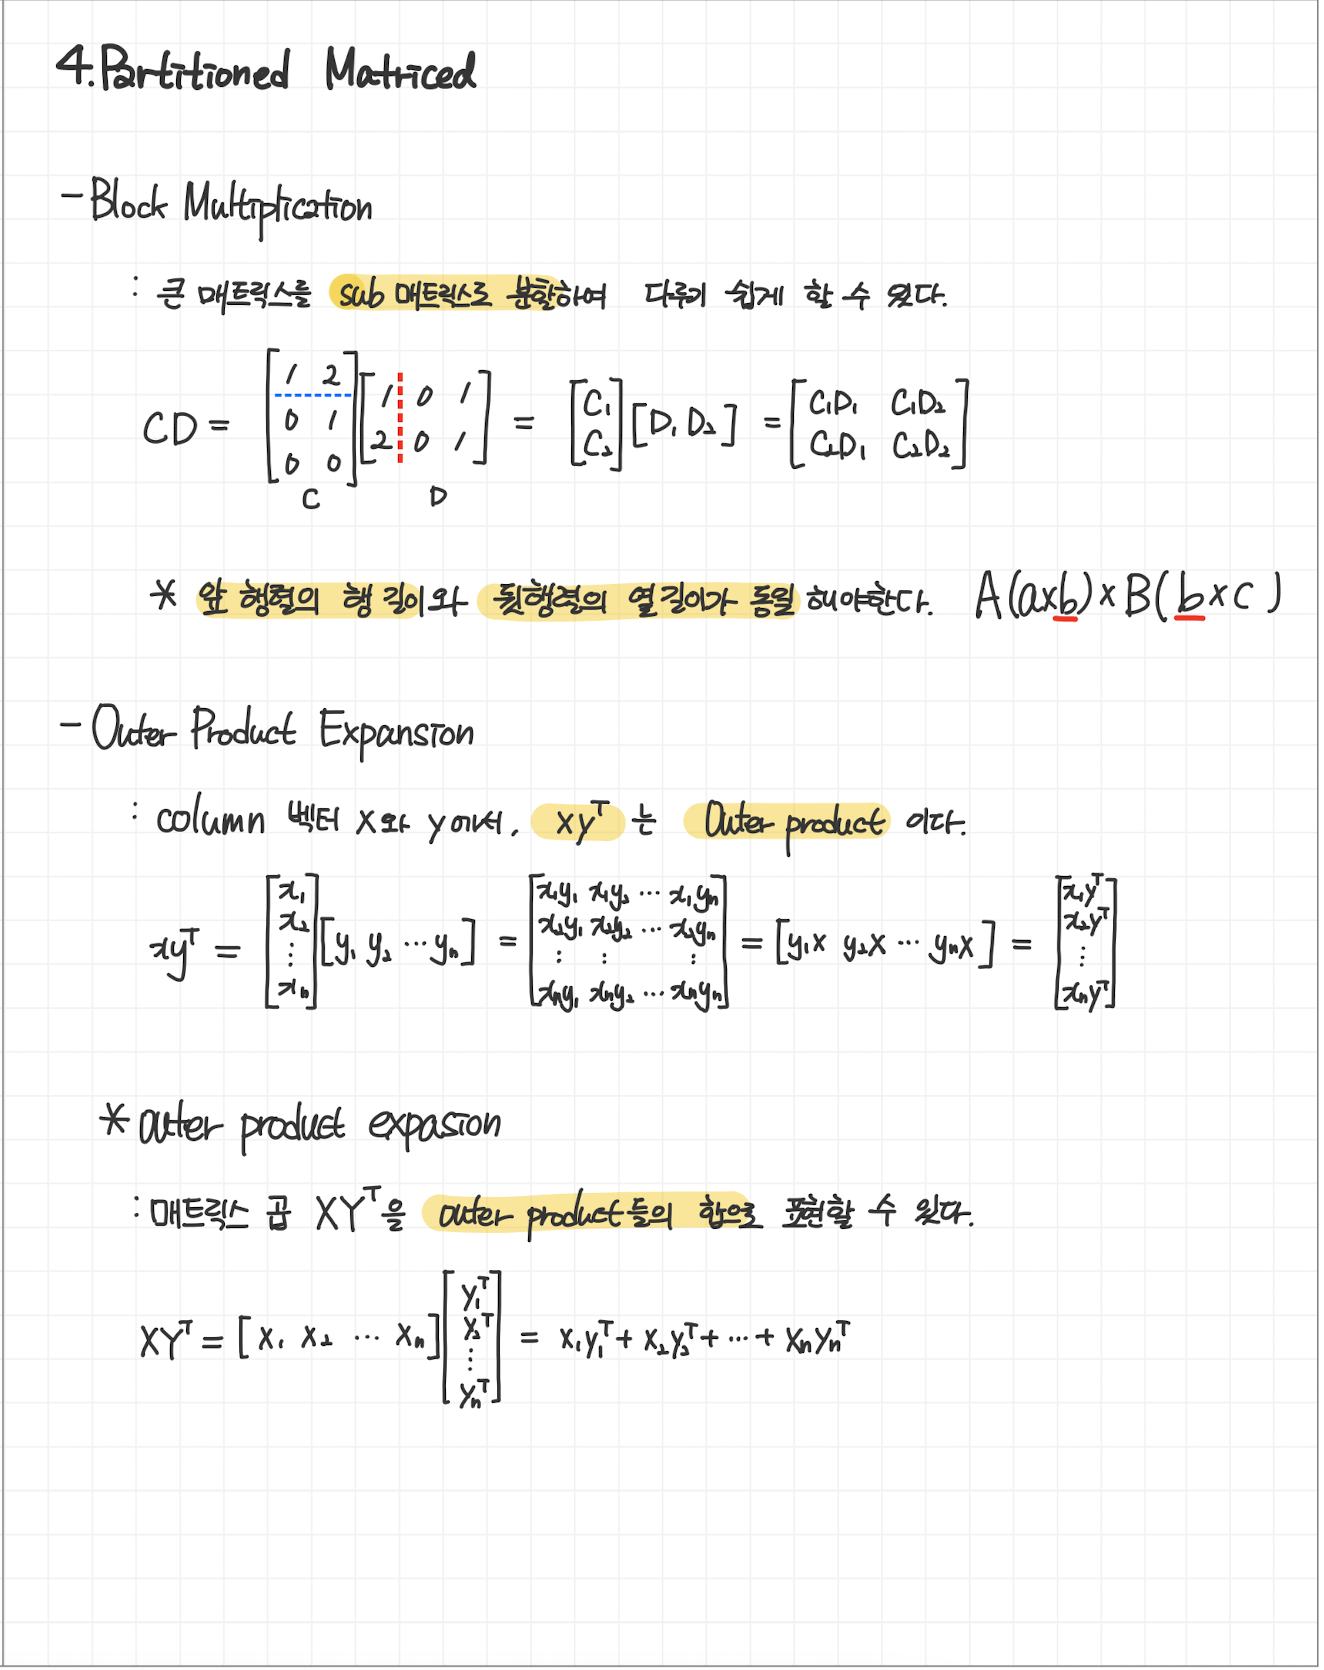 4. Partitioned Matriced
- Block Multiplication
: 큰 매트릭스를 sub 매트릭스로 분할하여 다루기 쉽게 할 수 있다.
CD = [1 2; 0 1; 0 0] [1 0 1; 2 0 1] = [C₁; C₂] [D₁ D₂] = [C₁D₁ C₁D₂; C₂D₁ C₂D₂]
C D
* 앞 행렬의 행 길이와 뒷행렬의 열길이가 동일 해야한다. A(a×b)×B(b×c)
- Outer Product Expansion
: column 벡터 x와 y에서, xyᵀ는 Outer product 이다.
xyᵀ = [x₁; x₂; ⋮; xₙ] [y₁ y₂ ⋯ yₙ] = [x₁y₁ x₁y₂ ⋯ x₁yₙ; x₂y₁ x₂y₂ ⋯ x₂yₙ; ⋮ ⋮ ⋮; xₙy₁ xₙy₂ ⋯ xₙyₙ] = [y₁x y₂x ⋯ yₙx] = [x₁yᵀ; x₂yᵀ; ⋮; xₙyᵀ]
* outer product expasion
: 매트릭스 곱 XYᵀ을 outer product들의 합으로 표현할 수 있다.
XYᵀ = [x₁ x₂ ⋯ xₙ] [y₁ᵀ; y₂ᵀ; ⋮; yₙᵀ] = x₁y₁ᵀ + x₂y₂ᵀ + ⋯ + xₙyₙᵀ